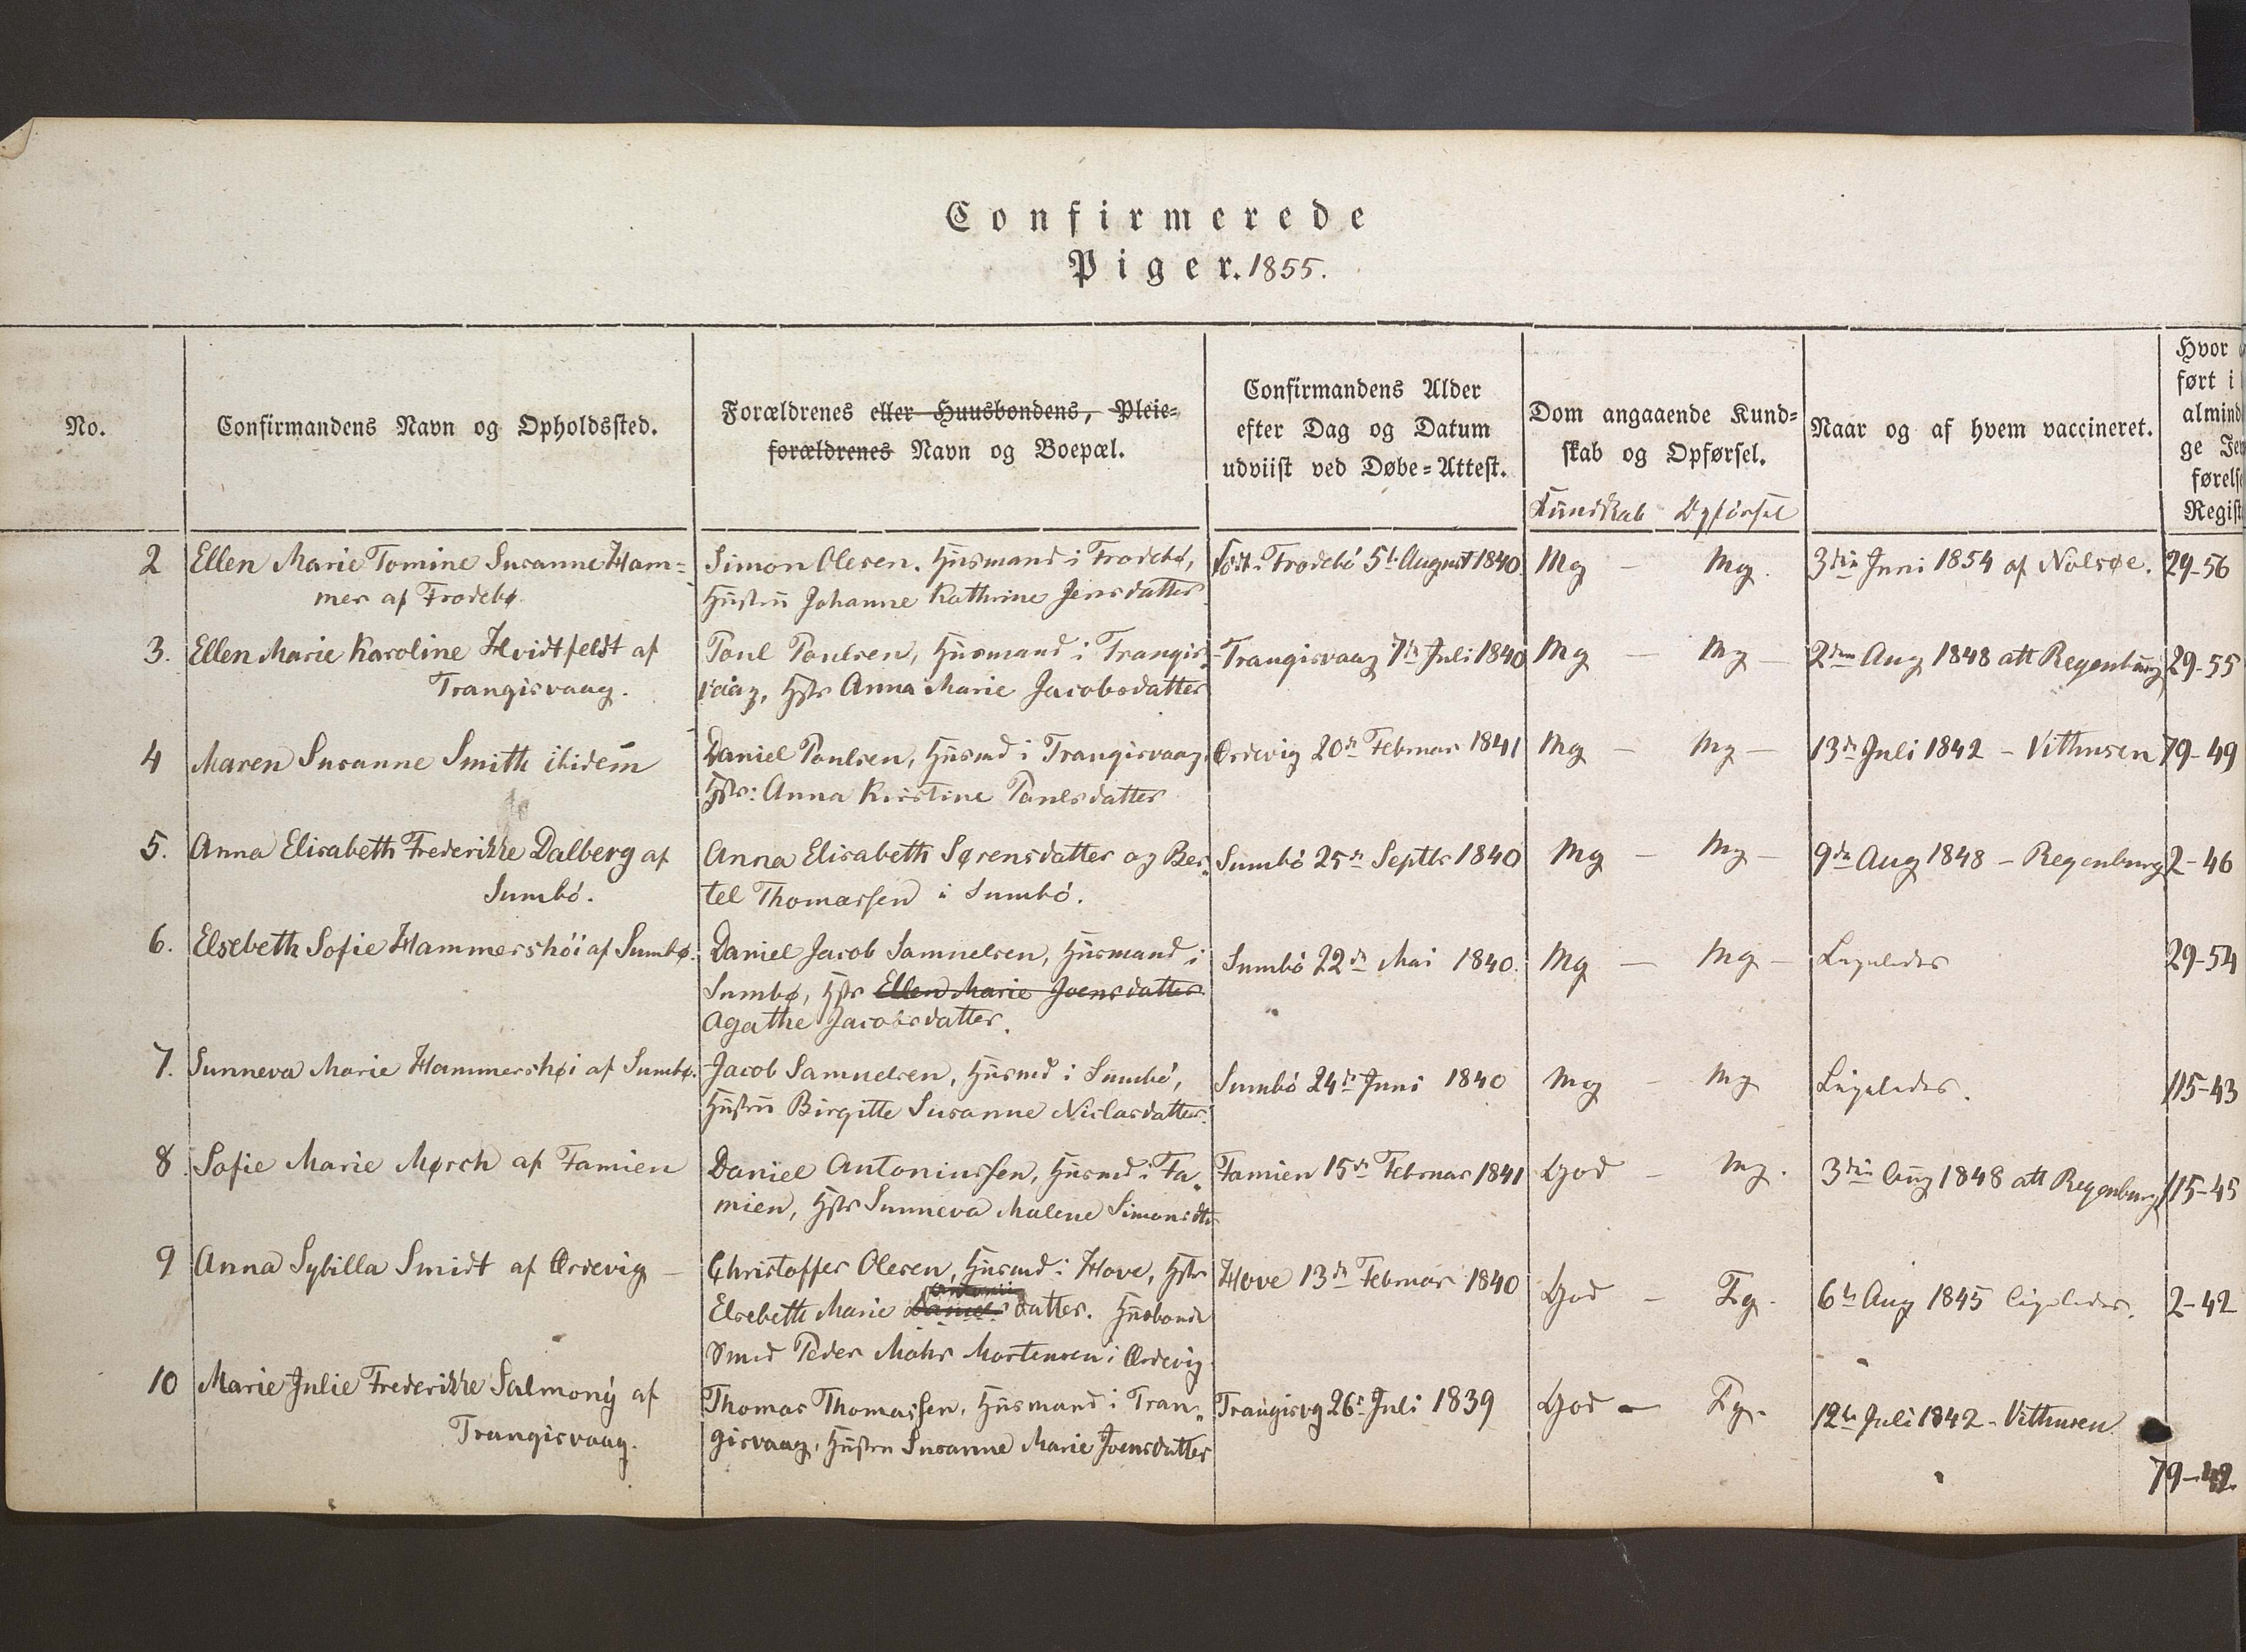 Confirmerede
Piger. 1855.
No.
Confirmandens Navn og Opholdssted.
Forældrenes eller Huusbondens, Pleie=
forældrenes Navn og Boepæl.
Confirmandens Alder
efter Dag og Datum
udviist ved Døbe=Attest.
Dom angaaende Kund=
skab og Opførsel.
Kundskab Opførsel
Naar og af hvem vaccineret.
Hvor
ført i
almind
ge
førelse
Regist
2 Ellen Marie Tomine Susanne Ham=
mer af Frodebø
Simon Olesen. Husmand i Frodebø,
Hustru Johanne Kathrine Jensdatter
Født i Frodebó 5t August 1840.
Mg — Mg.
3die Juni 1854 af Nolsøe.
29-56
3. Ellen Marie Karoline Hvidtfeldt af
Trangisvaag.
Poul Poulsen, Husmand i Trangis-
vaag, Hstr Anna Marie Jacobsdatter
Trangisvaag 7de Juli 1840
Mg — Mg —
2den Aug 1848 att Regenburg
29-55
4 Maren Susanne Smith ibidem
Daniel Poulsen, Husmd i Trangisvaag,
Hstr: Anna Kirstine Poulsdatter
Ordevig 20de Februar 1841
Mg — Mg —
13de Juli 1842 — Vithusen
79-49
5. Anna Elisabeth Frederikke Dalberg af
Sumbó.
Anna Elisabeth Sørensdatter og Ber-
tel Thomassen i Sumbó.
Sumbó 25de Septbr 1840
Mg — Mg —
9de Aug 1848 — Regenburg
2-46
6. Elsebeth Sofie Hammershói af Sumbø.
Daniel Jacob Samuelsen, Husmand i
Sumbø, Hstr Ellen Marie Joensdatter
Agathe Jacobsdatter.
Sumbó 22de Mai 1840.
Mg — Mg —
Ligeledes
29-54
7. Sunneva Marie Hammershøi af Sumbø.
Jacob Samuelsen, Husmd i Sumbó,
Hustru Birgitte Susanne Niclasdatter.
Sumbó 24de Juni 1840
Mg — Mg
Ligeledes.
115-43
8. Sofie Marie Mørch af Famien
Daniel Antoniussen, Husmd i Fa-
mien, Hstr Sunneva Malene Simonsdtr
Famien 15de Februar 1841
God — Mg.
3die Aug 1848 att Regenburg
115-45
9 Anna Sybilla Smidt af Ordevig —
Christoffer Olesen, Husmd i Hove, Hstr
Antonii
Elsebeth Marie Daniels datter. Husbonde
Smed Peder Mohr Mortensen i Ordevig
Hove 13de Februar 1840
God — Tg.
6te Aug 1845 ligeledes.
2-42
10 Marie Julie Frederikke Salmoný af
Trangisvaag.
Thomas Thomassen, Husmand i Tran-
gisvaag, Hustru Susanne Marie Joensdatter
Trangisvg 26de Juli 1839
God — Tg.
12te Juli 1842 — Vithusen
79-42